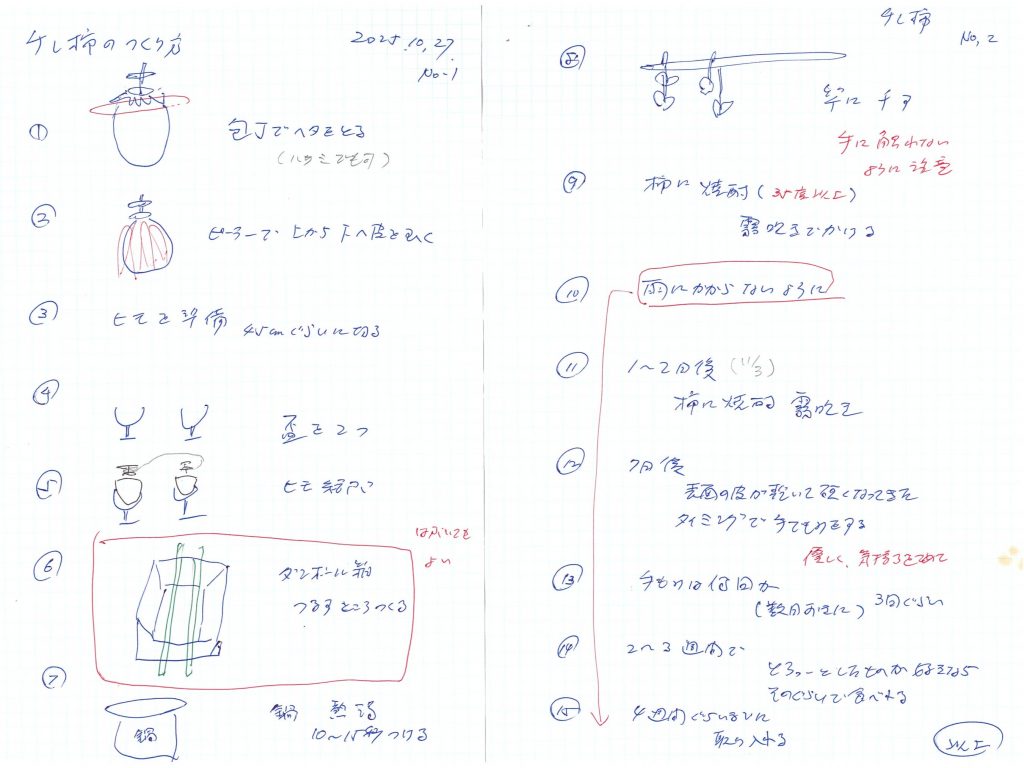 干し柿のつくり方
2025.10.27
No-1
①
包丁でヘタをとる
(ハサミでも可)
②
ピーラーで上から下へ皮をむく
③
ヒモを準備 45cmぐらいに切る
④
盃を2つ
⑤
ヒモ結び
⑥
はぶいても
よい
ダンボール箱
つるすところつくる
⑦
鍋
鍋 熱湯
10〜15秒つける
干し柿
No,2
⑧
竿に干す
手に触れない
ように注意
⑨
柿に焼酎(35度以上)
霧吹きでかける
⑩
雨にかからないように
⑪
1〜2日後(11/3)
柿に焼酎 霧吹き
⑫
7日後
表面の皮が乾いて硬くなってきた
タイミングで手でもみをする
優しく、気持ちをこめて
⑬
手もみは何回か
(数日おきに) 3回ぐらい
⑭
2〜3週間で
とろっーとしたものが好きなら
そのぐらいで食べれる
⑮
4週間ぐらいまでに
取り入れる
以上